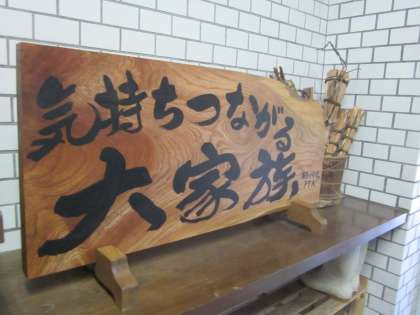 気持ちつながる
大家族